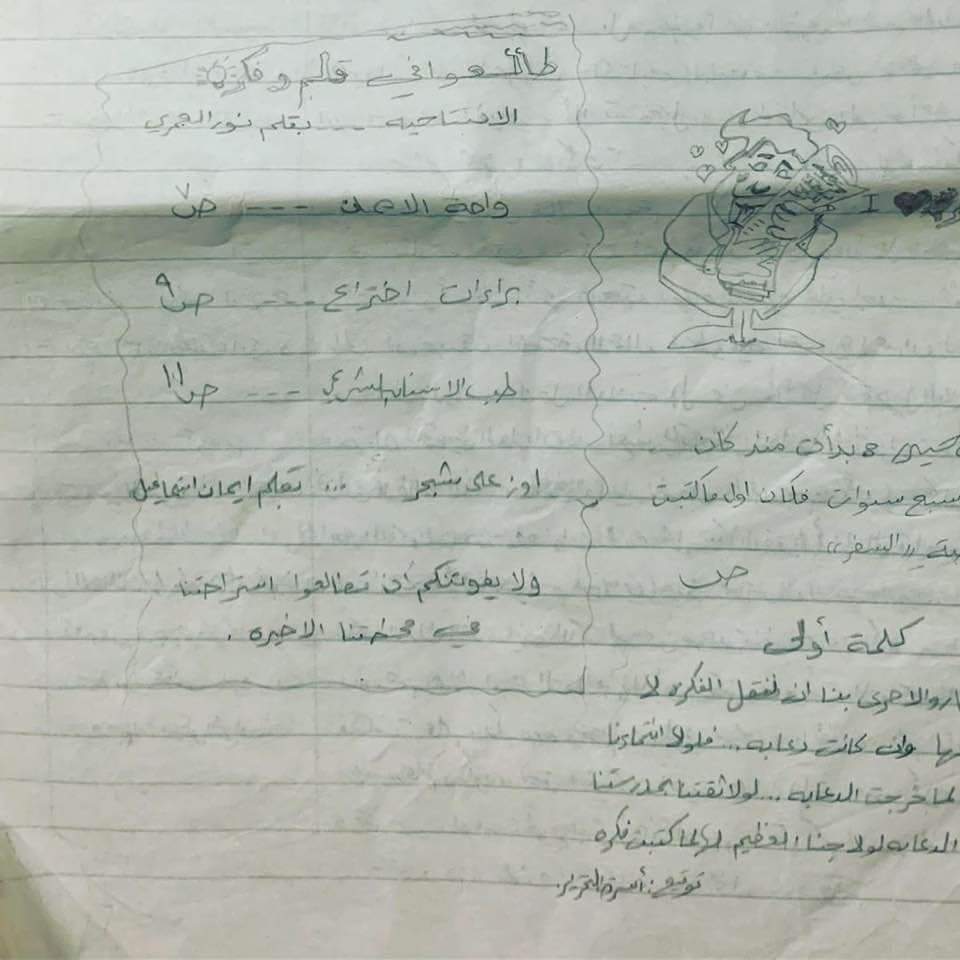 طالعوا في قلم وفكرة
الافتتاحيه --- بقلم نور العمري
واحة الاعلان --- ص٧
براءات اختراع --- ص٩
طب الاسنان الشرعي --- ص١١
اوز على شجر ... بقلم ايمان اسماعيل
ولا يفوتنكم ان تطالعوا استراحتنا
في محطتنا الاخيره .
I
بدأت منذ كان
سبع سنوات فكان اول ما كتبت
"السفر"
ص
كلمة أولى
والاحرى بنا ان نقتل الفكره لا
وان كانت دعابه ... فلولا انتماءنا
لما خرجت الدعابه ... لولا ثقتنا بمدرستنا
الدعابه لولا حبنا العظيم لها لما كتبت فكره
توقيع: أسرة التحرير.